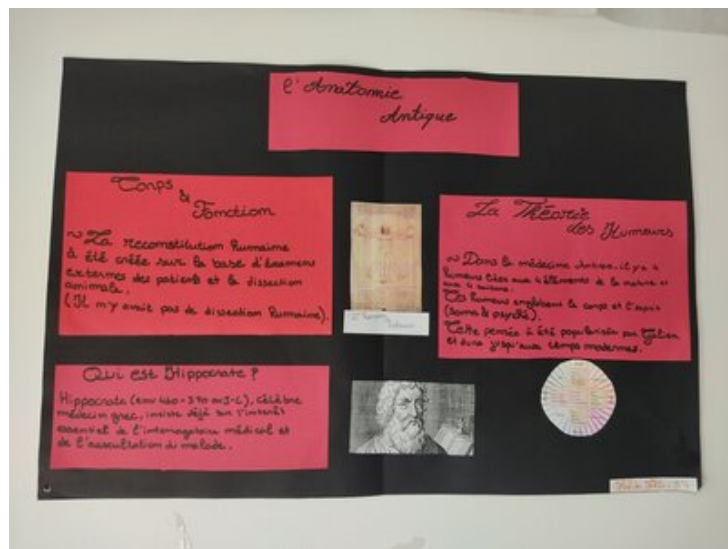 l'Anatomie
Antique
Corps
&
Fonction
~ La reconstitution humaine
à été créée sur la base d'examens
externes des patients et la dissection
animale.
(Il n'y avait pas de dissection humaine).
La Théorie
des Humeurs
~ Dans la médecine Antique, il y a 4
humeurs liées aux 4 éléments de la nature et
aux 4 saisons.
Ces humeurs englobent le corps et l'esprit
(soma & psyché).
Cette pensée à été popularisée par Galien
et dure jusqu'aux temps modernes.
Qui est Hippocrate ?
Hippocrate (env 460-370 av J-C), célèbre
médecin grec, insiste déjà sur l'intérêt
essentiel de l'interrogatoire médical et
de l'auscultation du malade.